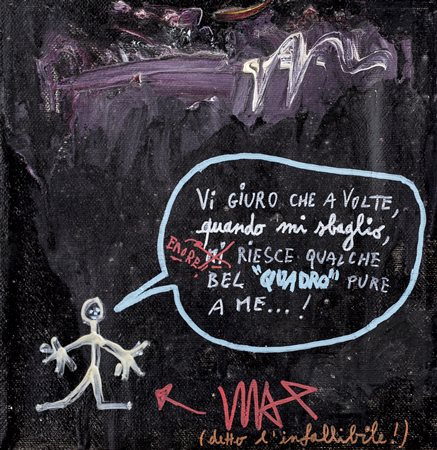 Vi GIURO CHE A VOLTE,
quando mi sbaglio,
mi RIESCE QUALCHE
BEL "QUADRO" PURE
A ME...!
(detto l'infallibile!)